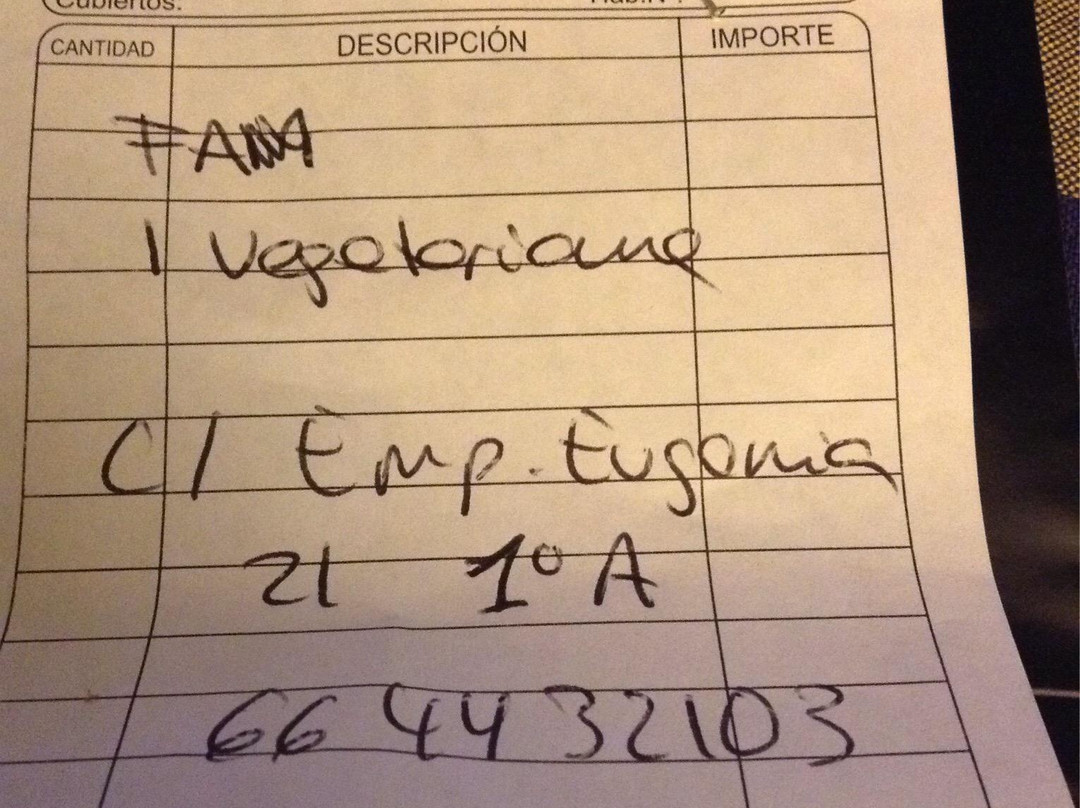 Cubiertos:
CANTIDAD DESCRIPCIÓN IMPORTE
1 Vegetariana
C/ Emp. Eugenia
21 1º A
66 44 32103